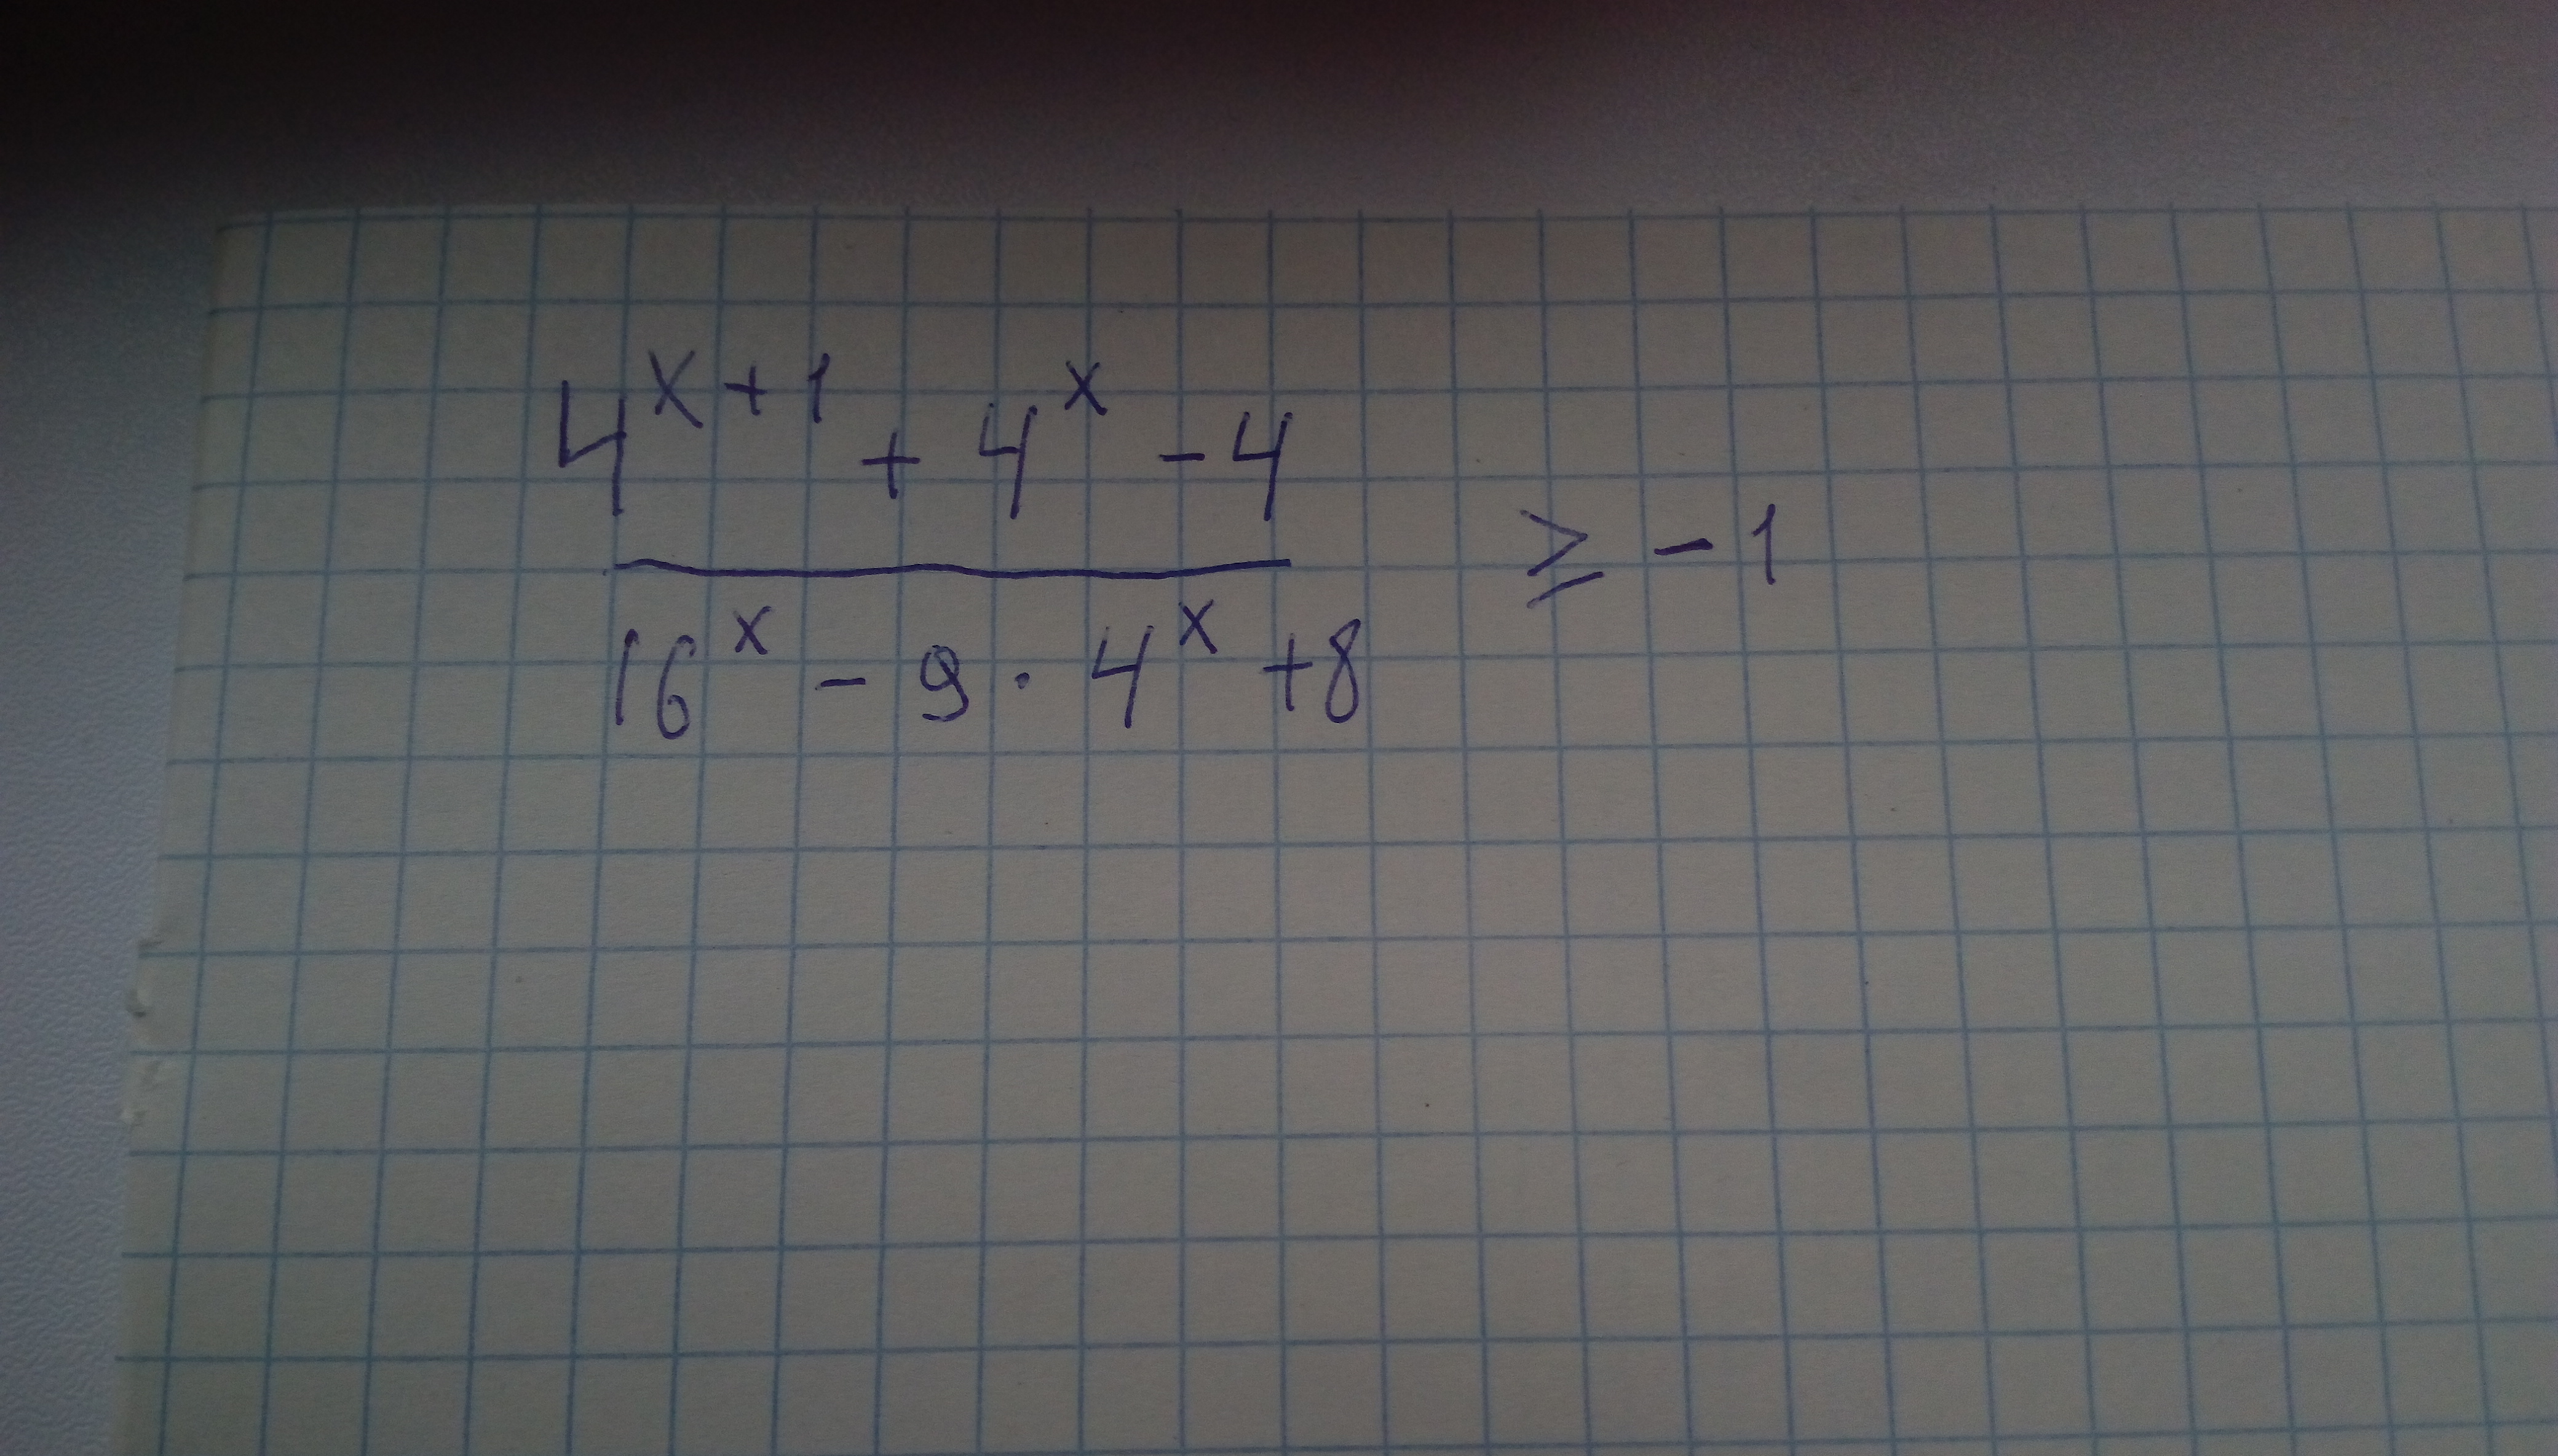 4^{x+1} + 4^x - 4
16^x - 9 · 4^x + 8
≥ -1